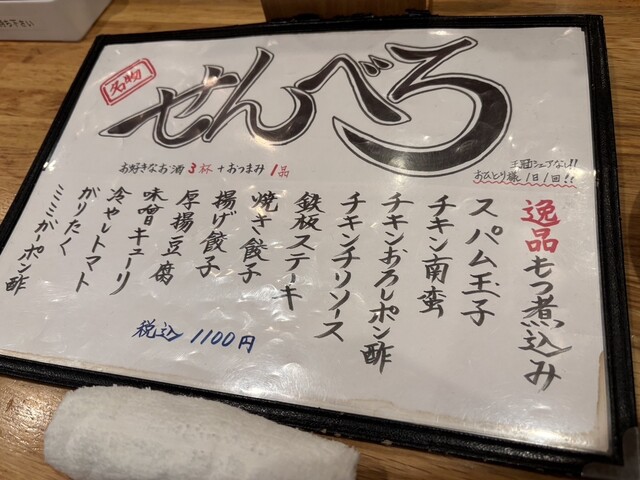 名物
せんべろ
お好きなお酒3杯+おつまみ1品
お酒シェアなし!!
おひとり様1日1回!!
逸品もつ煮込み
スパム玉子
チキン南蛮
チキンおろしポン酢
チキンチリソース
鉄板ステーキ
焼き餃子
揚げ餃子
厚揚豆腐
味噌キューリ
冷やしトマト
がりたく
ミミガーポン酢
税込1100円